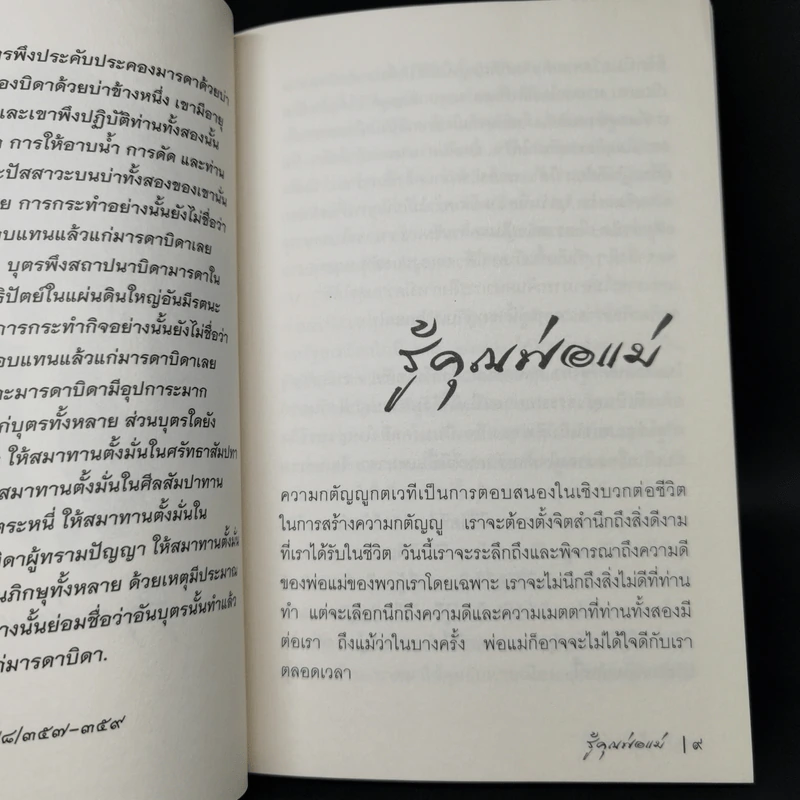 รพึงประคับประคองมารดาด้วยบ่า
องบิดาด้วยบ่าข้างหนึ่ง เขามีอายุ
และเขาพึงปฏิบัติท่านทั้งสองนั้น
การให้อาบน้ำ การดัด และท่าน
ะปัสสาวะบนบ่าทั้งสองของเขานั่น
ย การกระทำอย่างนั้นยังไม่ชื่อว่า
อบแทนแล้วแก่มารดาบิดาเลย
บุตรพึงสถาปนาบิดามารดาใน
ธิปัตย์ในแผ่นดินใหญ่อันมีรตนะ
การกระทำกิจอย่างนั้นยังไม่ชื่อว่า
อบแทนแล้วแก่มารดาบิดาเลย
ะมารดาบิดามีอุปการะมาก
ก่บุตรทั้งหลาย ส่วนบุตรใดยัง
ให้สมาทานตั้งมั่นในศรัทธาสัมปทา
สมาทานตั้งมั่นในศีลสัมปาทาน
ตระหนี่ ให้สมาทานตั้งมั่นใน
บิดาผู้ทรามปัญญา ให้สมาทานตั้งมั่น
นภิกษุทั้งหลาย ด้วยเหตุมีประมาณ
างนั้นย่อมชื่อว่าอันบุตรนั้นทำแล้ว
ก่มารดาบิดา.
/๘/๓๕๗-๓๕๙
รู้คุณพ่อแม่
ความกตัญญูกตเวทีเป็นการตอบสนองในเชิงบวกต่อชีวิต
ในการสร้างความกตัญญู เราจะต้องตั้งจิตสำนึกถึงสิ่งดีงาม
ที่เราได้รับในชีวิต วันนี้เราจะระลึกถึงและพิจารณาถึงความดี
ของพ่อแม่ของพวกเราโดยเฉพาะ เราจะไม่นึกถึงสิ่งไม่ดีที่ท่าน
ทำ แต่จะเลือกนึกถึงความดีและความเมตตาที่ท่านทั้งสองมี
ต่อเรา ถึงแม้ว่าในบางครั้ง พ่อแม่ก็อาจจะไม่ได้ใจดีกับเรา
ตลอดเวลา
รู้คุณพ่อแม่ | ๙